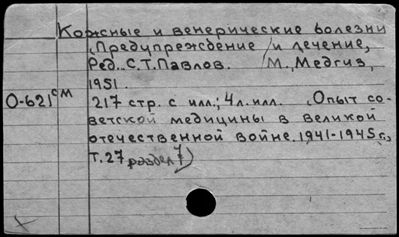 Кожные и венерические болезни
(Предупреждение и лечение,
Ред. С.Т.Павлов. М., Медгиз,
1951.
О-621 см
217 стр. с илл.; 4 л. илл. (Опыт со-
ветской медицины в великой
отечественной войне. 1941-1945 г.,
Т. 27 раздел 7)